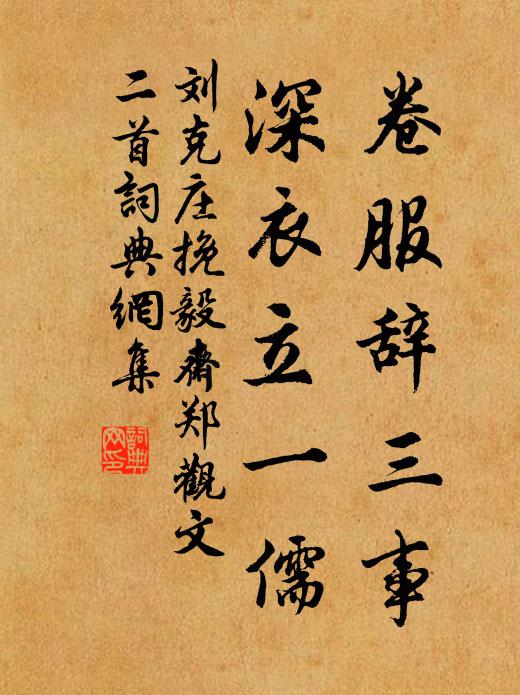 卷服辞三事
深衣立一儒
刘克庄挽毅斋郑觀文
二首詞典網集
詞典
网印